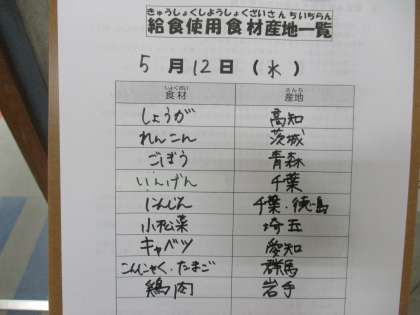 きゅうしょくしようしょくざいさんちいちらん
給食使用食材産地一覧
5月12日(水)
しょくざい さんち
食材 産地
しょうが 高知
れんこん 茨城
ごぼう 青森
いんげん 千葉
にんじん 千葉・徳島
小松菜 埼玉
キャベツ 愛知
こんにゃく・たまご 群馬
鶏肉 岩手